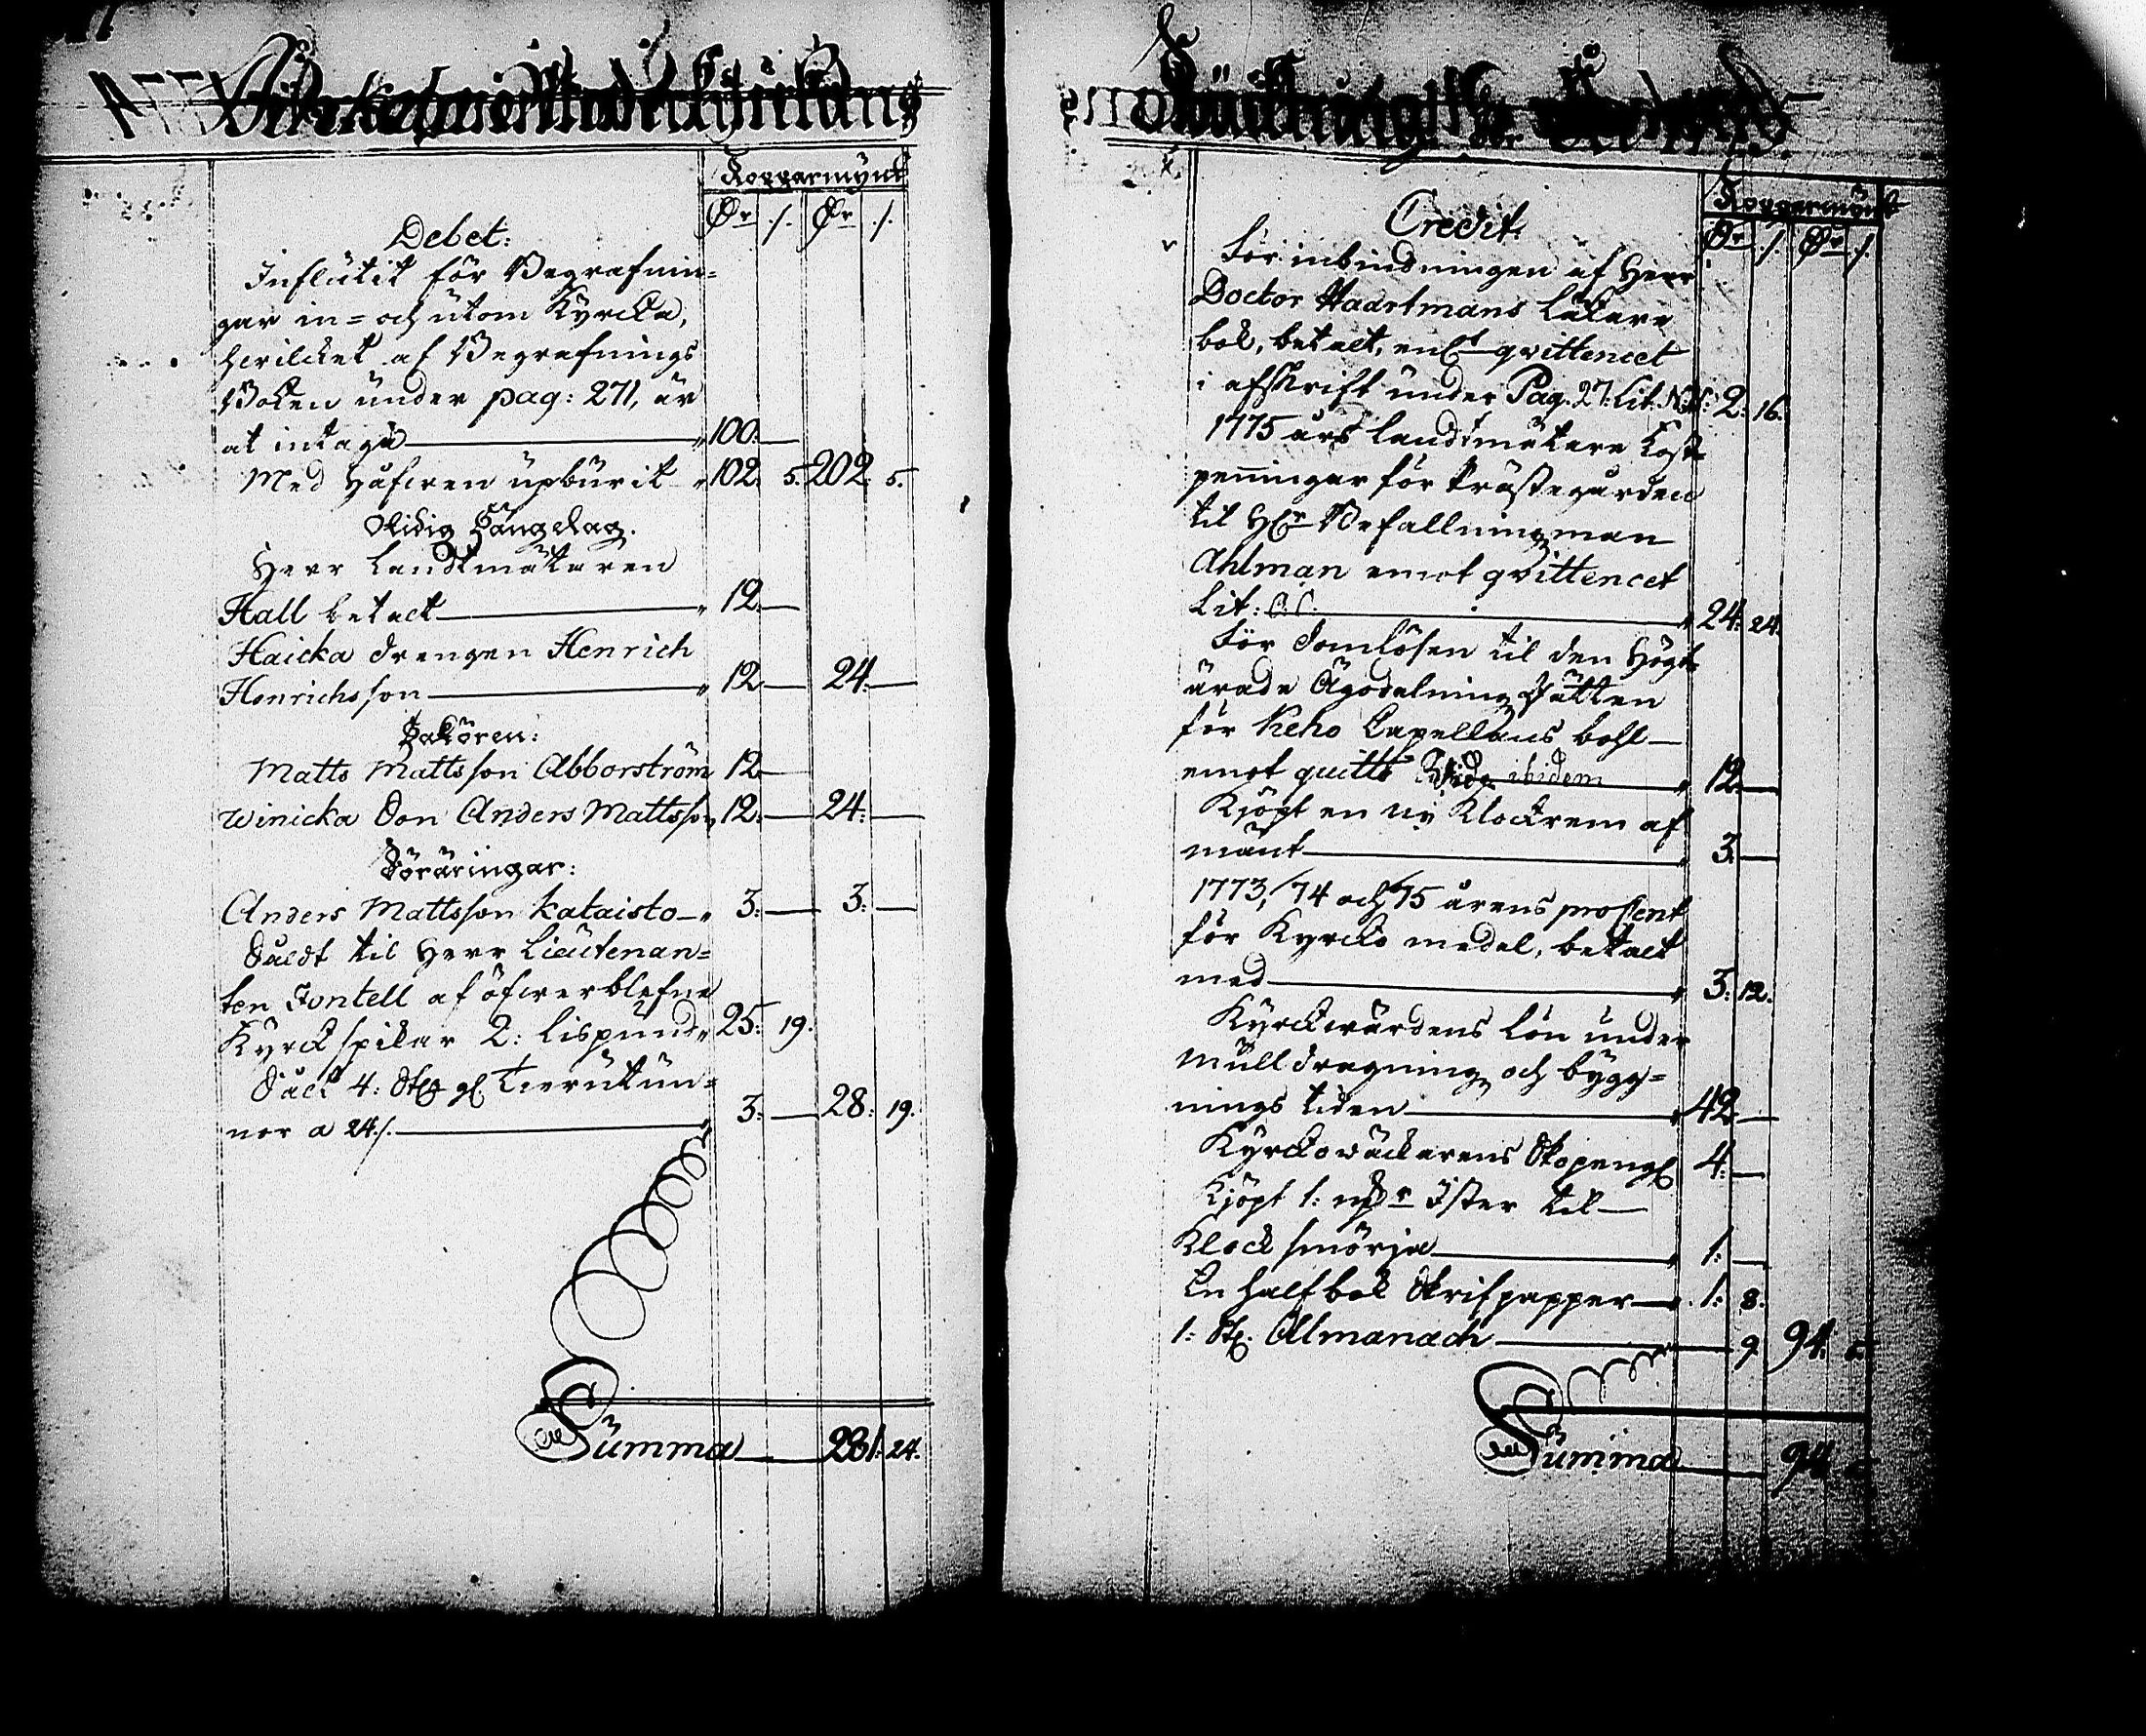 Koppármynt
Dr ./. Dr ./.
Debet:
Influtit för Begrafnin=
gar in= och utom Kyrcka,
hvilcket af Begrafnings
Boken under pag: 271, är
at intaga 100: —
Med Håfwen upburit 102. 5. 202. 5.
Olidig Sängelag.
Herr Landtmätaren
Hall betalt 12. —
Haicka drengen Henrich
Henrichsson 12 — 24: —
Sakören:
Matts Mattsson Abborström 12 —
Winicka Son Anders Mattsson 12: — 24: —
Föräringar:
Anders Mattsson Kataisto 3: — 3: —
Såldt til Herr Lieutenan=
ten Fontell af öfwerblefne
Kyrck spikar 2: Lispund 25: 19.
Såld 4: St gl. tierutun=
nor a 24 ./. 3: — 28: 19.
Summa 281: 24.
Koppármynt
Dr ./. Dr ./.
Credit:
För inbindningen af Herr
Doctor Haartmans Läkare
bok, betalt, enl. qvittencet
i afskrift under Pag. 27: Lit. NN: 2: 16.
1775 års landtmätare Kost
penningar för Prästegården
til Hr Befallningsman
Ahlman emot qvittencet
Lit: 24: 24.
För Domlösen til den Högt
ärade Ägodelnings Rätten
för Keho Capellans bohl
emot quitto ibidem 12. —
Kjöpt en ny Klockrem af
mant 3. —
1773, 74 och 75 årens procent
för Kyrcko medel, betalt
med 3: 12.
Kyrckwärdens lön under
mulldragnings och bygg=
nings tiden 42 —
Kyrckowäckarens Skopengl 4: —
Kjöpt 1: mkr Ister til
Klock smörja 1: —
En half bok Skrifpapper 1: 8.
1: St. Almanach — 9. 94: 5.
Summa 94